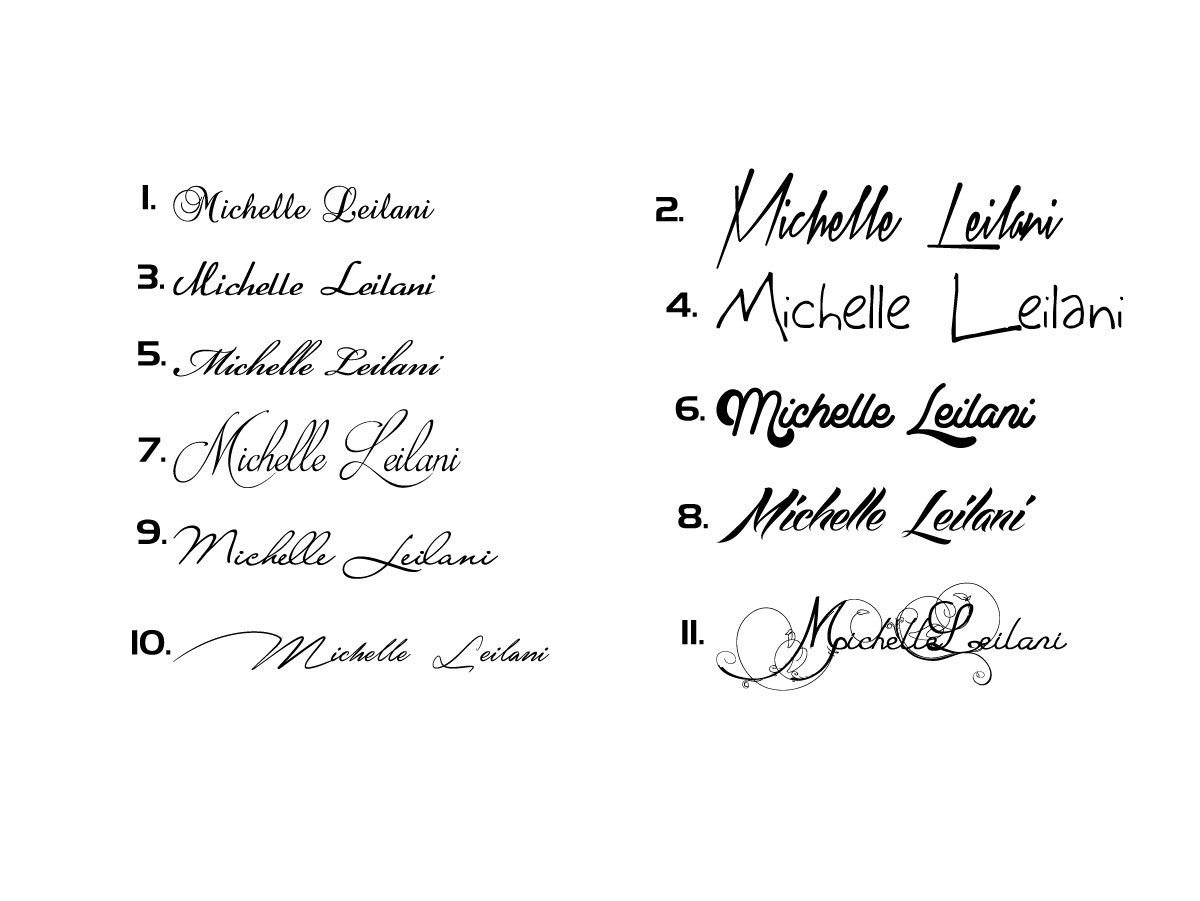 1. Michelle Leilani
2. Michelle Leilani
3. Michelle Leilani
4. Michelle Leilani
5. Michelle Leilani
6. Michelle Leilani
7. Michelle Leilani
8. Michelle Leilani
9. Michelle Leilani
10. Michelle Leilani
11. Michelle Leilani